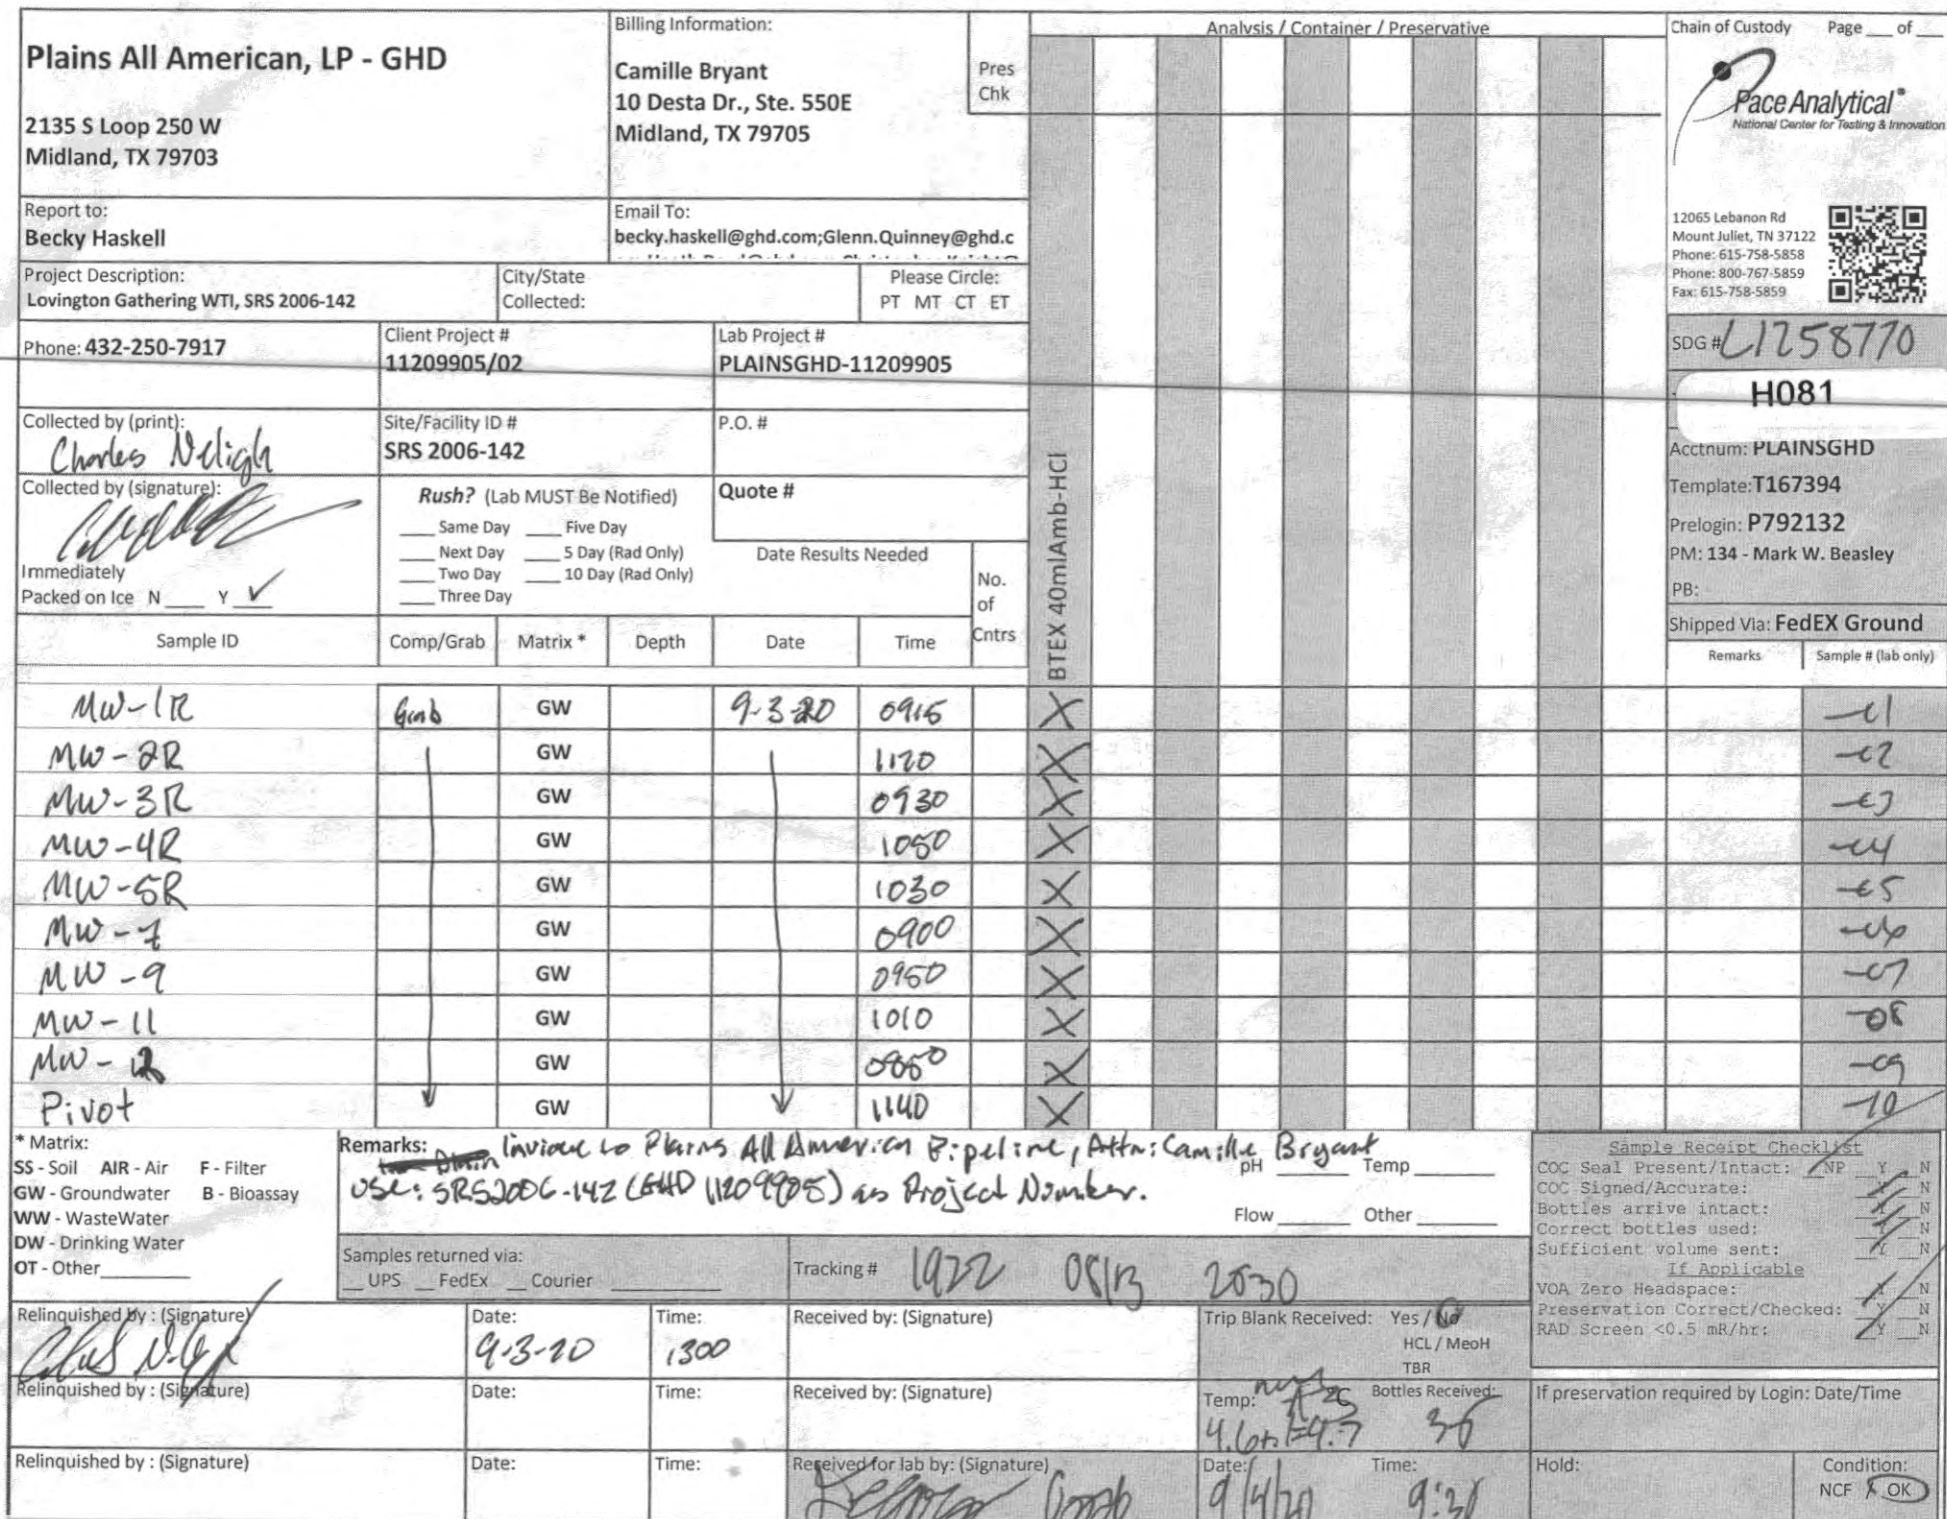 Plains All American, LP - GHD
2135 S Loop 250 W
Midland, TX 79703
Billing Information:
Camille Bryant
10 Desta Dr., Ste. 550E
Midland, TX 79705
Pres
Chk
Analysis / Container / Preservative
Chain of Custody Page ___ of ___
Pace Analytical®
National Center for Testing & Innovation
12065 Lebanon Rd
Mount Juliet, TN 37122
Phone: 615-758-5858
Phone: 800-767-5859
Fax: 615-758-5859
Report to:
Becky Haskell
Email To:
becky.haskell@ghd.com;Glenn.Quinney@ghd.c
Project Description:
Lovington Gathering WTI, SRS 2006-142
City/State
Collected:
Please Circle:
PT MT CT ET
Phone: 432-250-7917
Client Project #
11209905/02
Lab Project #
PLAINSGHD-11209905
SDG # L1258770
H081
Collected by (print):
Charles Neligh
Site/Facility ID #
SRS 2006-142
P.O. #
Acctnum: PLAINSGHD
Template:T167394
Prelogin: P792132
PM: 134 - Mark W. Beasley
PB:
Shipped Via: FedEX Ground
Collected by (signature):
Immediately
Packed on Ice N ___ Y ✓
Rush? (Lab MUST Be Notified)
___ Same Day ___ Five Day
___ Next Day ___ 5 Day (Rad Only)
___ Two Day ___ 10 Day (Rad Only)
___ Three Day
Quote #
Date Results Needed
No.
of
Cntrs
BTEX 40mlAmb-HCl
Sample ID Comp/Grab Matrix * Depth Date Time Remarks Sample # (lab only)
MW-1R Grab GW 9-3-20 0915 X -01
MW-2R GW 1120 X -02
MW-3R GW 0930 X -03
MW-4R GW 1050 X -04
MW-5R GW 1030 X -05
MW-7 GW 0900 X -06
MW-9 GW 0950 X -07
MW-11 GW 1010 X -08
MW-12 GW 0850 X -09
Pivot GW 1140 X -10
* Matrix:
SS - Soil AIR - Air F - Filter
GW - Groundwater B - Bioassay
WW - WasteWater
DW - Drinking Water
OT - Other
Remarks: Invioce to Plains All American Pipeline, Attn: Camille Bryant
Use: SRS2006-142 (GHD 11209905) as Project Number.
pH ___ Temp ___
Flow ___ Other ___
Samples returned via:
__ UPS __ FedEx __ Courier
Tracking # 1922 0813 2030
Sample Receipt Checklist
COC Seal Present/Intact: NP Y N
COC Signed/Accurate: Y N
Bottles arrive intact: Y N
Correct bottles used: Y N
Sufficient volume sent: Y N
If Applicable
VOA Zero Headspace: Y N
Preservation Correct/Checked: Y N
RAD Screen <0.5 mR/hr: Y N
Relinquished by : (Signature)
Date:
9-3-20
Time:
1300
Received by: (Signature)
Trip Blank Received: Yes / No
HCL / MeoH
TBR
Relinquished by : (Signature)
Date:
Time:
Received by: (Signature)
Temp:
4.6+.1=4.7
Bottles Received:
30
If preservation required by Login: Date/Time
Relinquished by : (Signature)
Date:
Time:
Received for lab by: (Signature)
Date:
9/4/20
Time:
9:30
Hold:
Condition:
NCF / OK